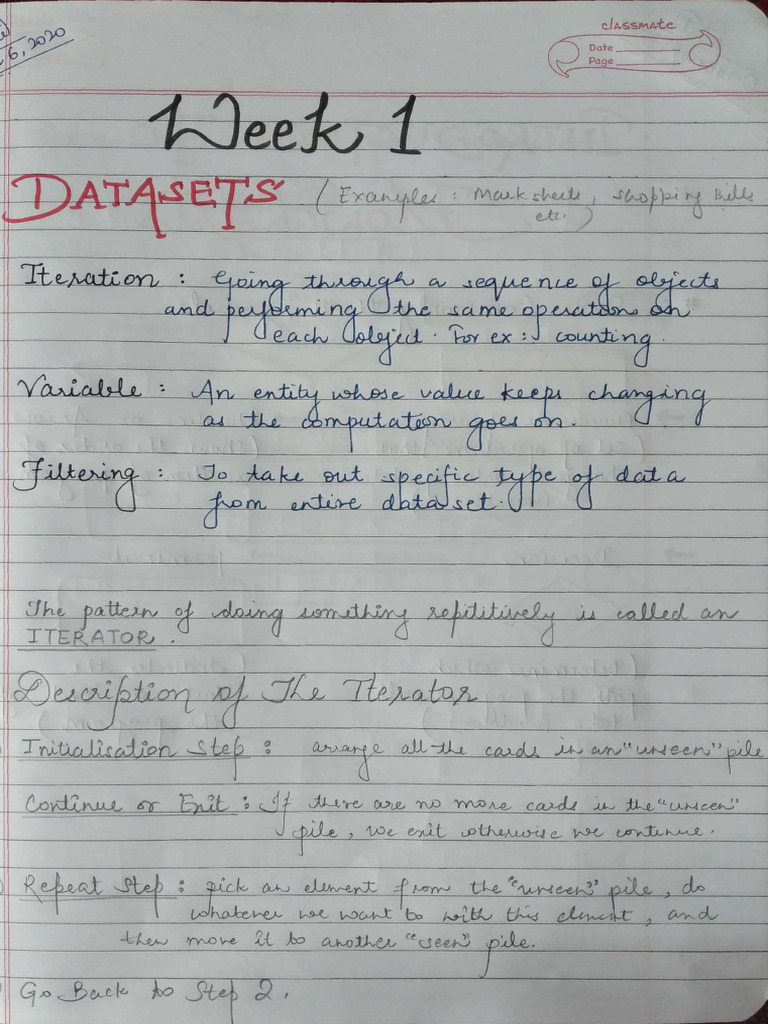 6, 2020
classmate
Date
Page
Week 1
DATASETS (Examples : Mark sheets, Shopping Bills
etc.)
Iteration : Going through a sequence of objects
and performing the same operation on
each object. For ex: counting.
Variable : An entity whose value keeps changing
as the computation goes on.
Filtering : To take out specific type of data
from entire data set.
The pattern of doing something repititively is called an
ITERATOR.
Description of The Iterator
Initialisation Step : arrange all the cards in an "unseen" pile
Continue or Exit : If there are no more cards in the "unseen"
pile, we exit otherwise we continue.
Repeat Step : pick an element from the "unseen" pile, do
whatever we want to with this element, and
then move it to another "seen" pile.
Go Back to Step 2.